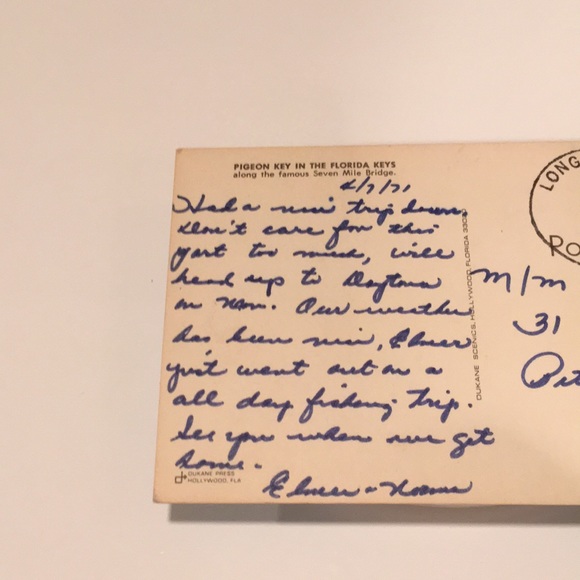 PIGEON KEY IN THE FLORIDA KEYS
along the famous Seven Mile Bridge.
4/7/71
Had a nice trip down,
don't care for this
part too much, will
head up to Daytona
on Mon. Our weather
has been nice, Elmer
just went out on a
all day fishing trip.
See you when we get
home.
Elmer - Norma
DUKANE PRESS
HOLLYWOOD, FLA
DUKANE SCENICS, HOLLYWOOD, FLORIDA
LONG
PO
M/M
31